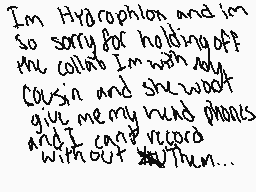 Im Hydrophlox and im
so sorry for holding off
the collab Im with my
cousin and she wodt
give me my head phones
and I can't record
without them...